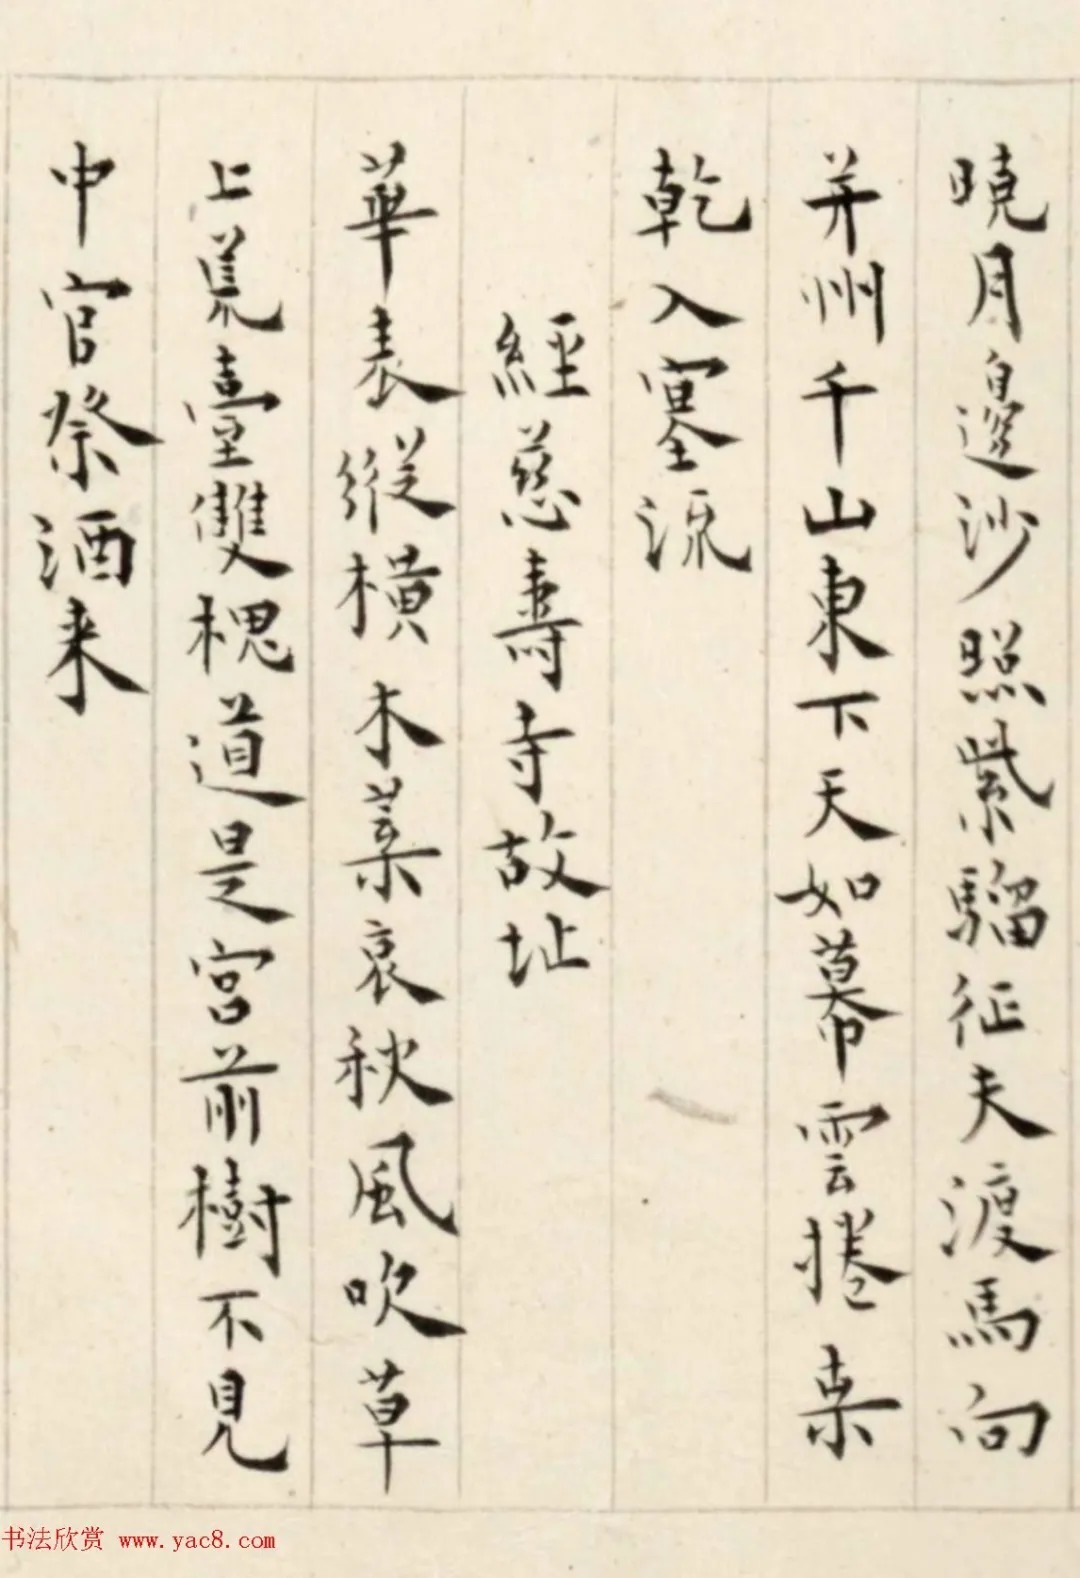 曉月邊沙照紫騮征夫渡馬向
并州千山東下天如幕雲捲桑
乾入塞流
經慈壽寺故址
華表縱橫木葉哀秋風吹草
上荒臺雙槐道是宮前樹不見
中官祭酒来
书法欣赏 www.yac8.com